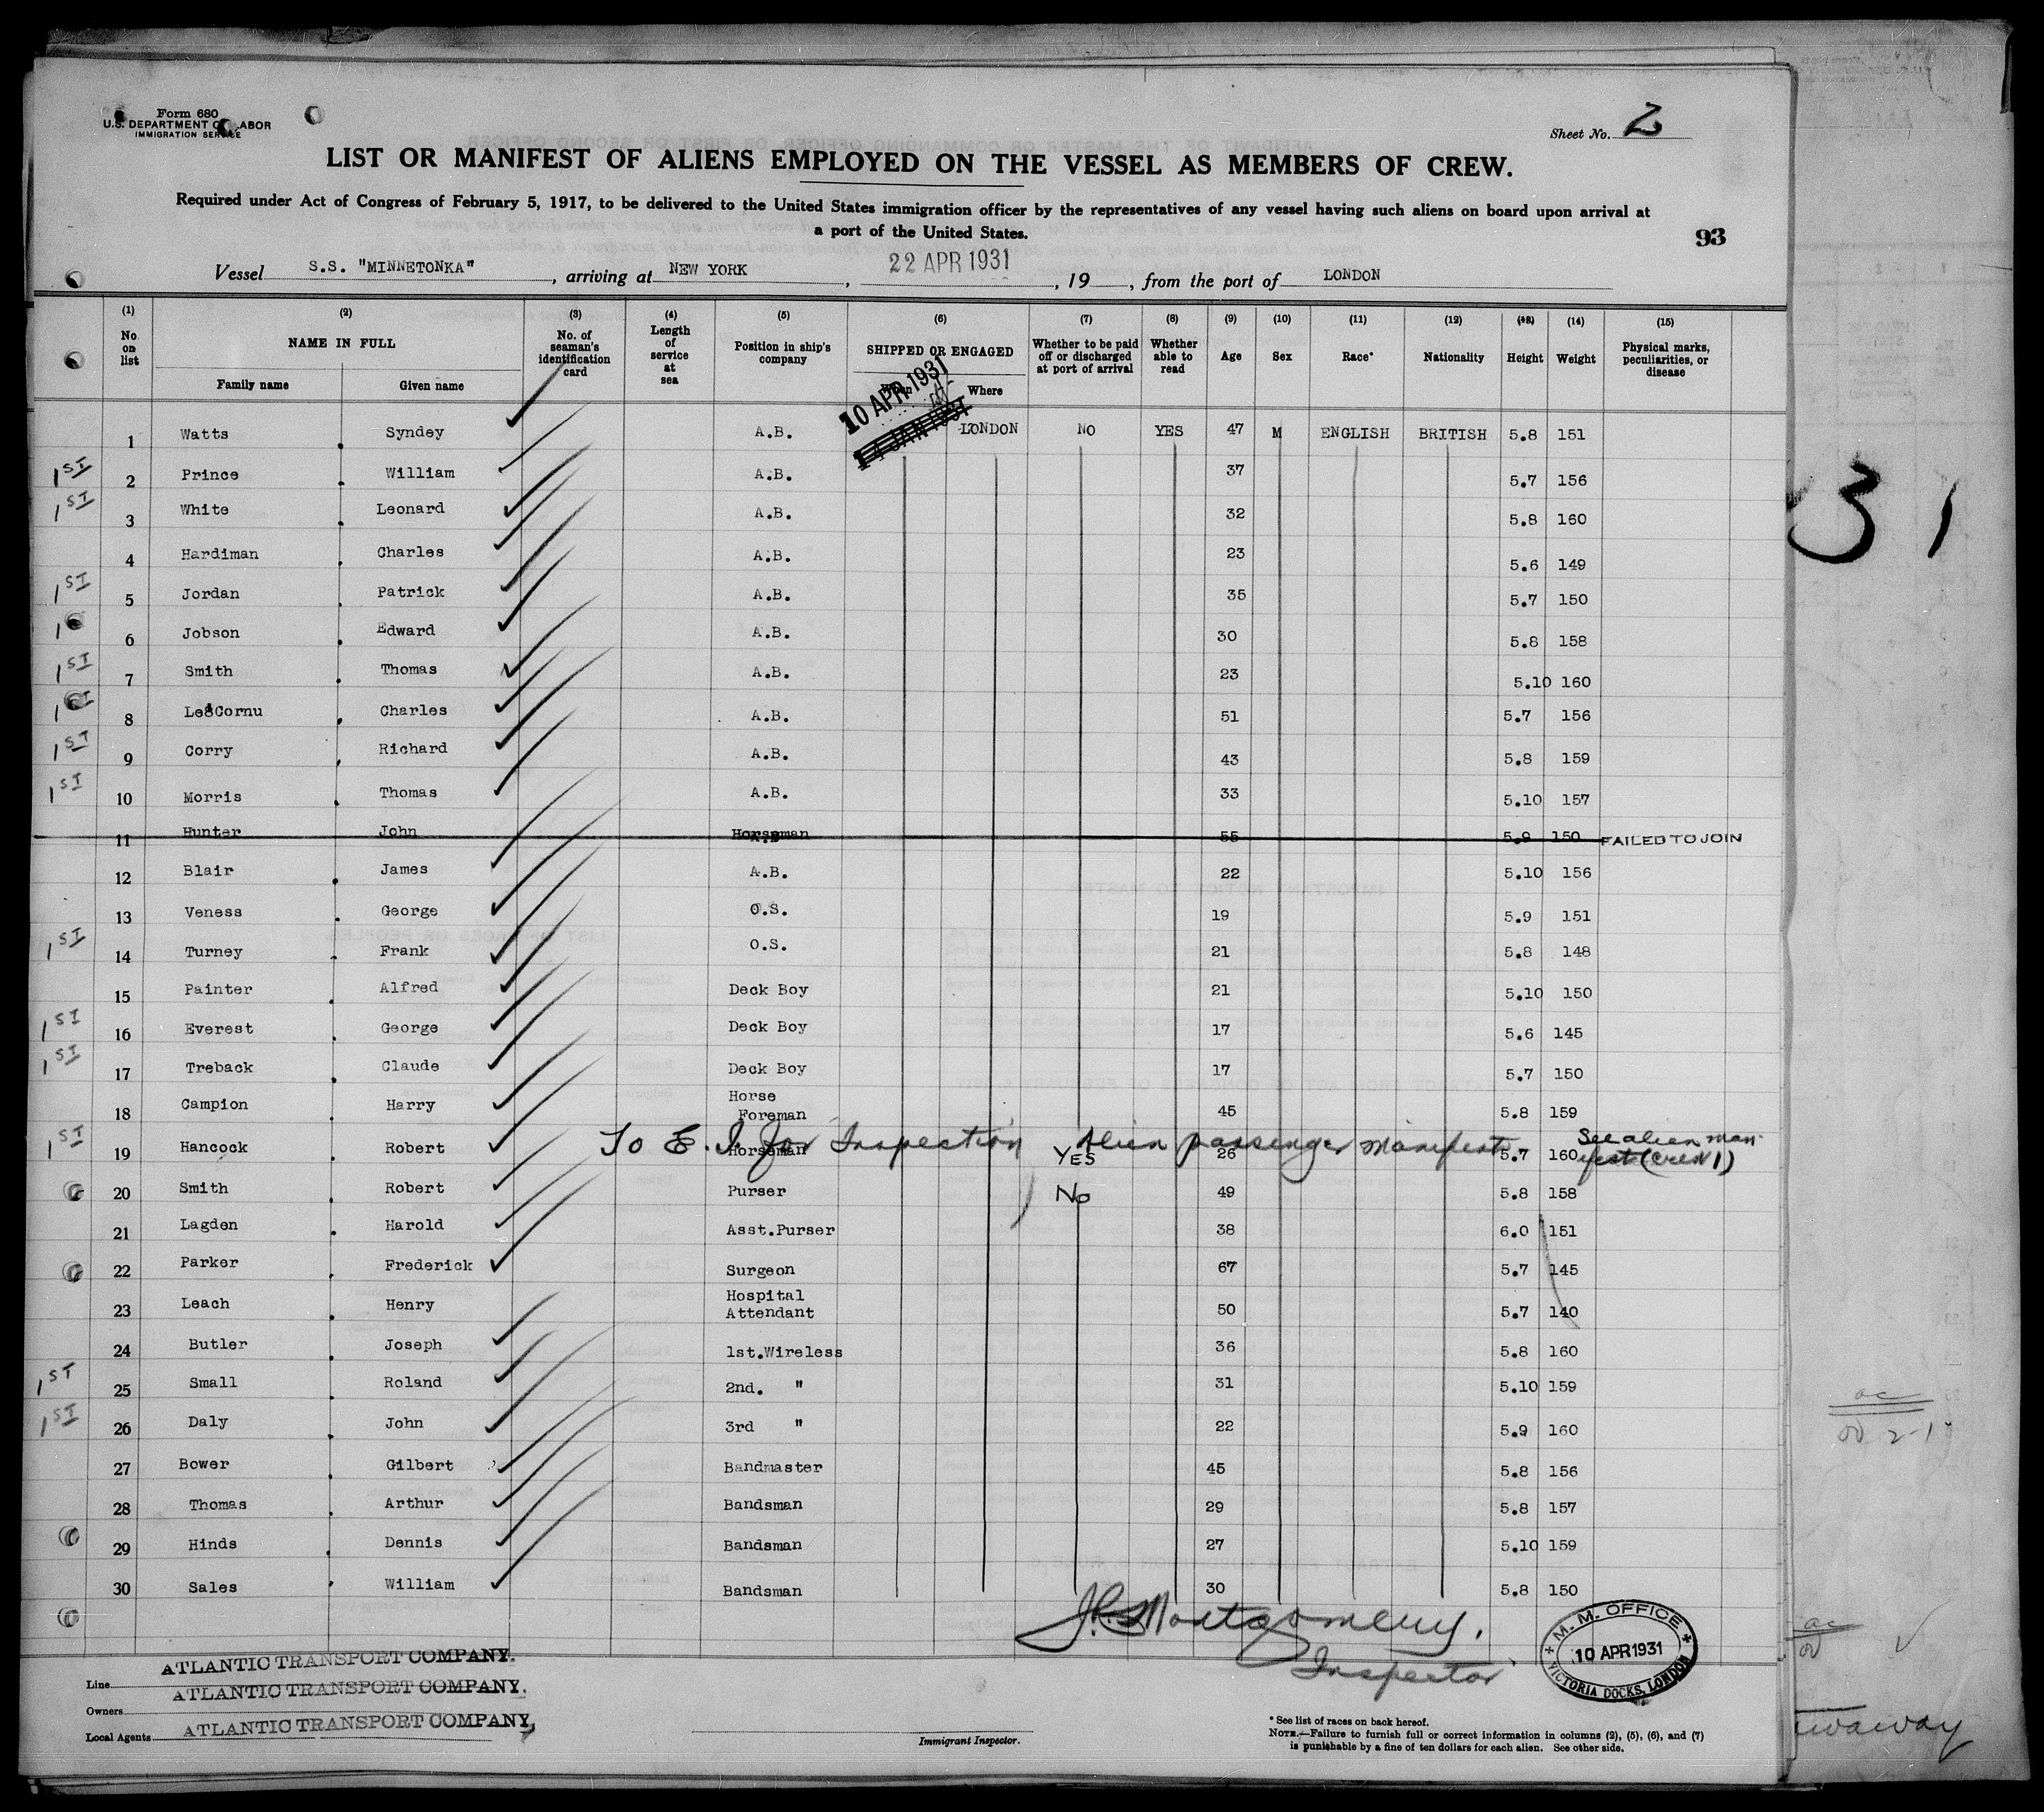 Form 680
U.S. DEPARTMENT OF LABOR
IMMIGRATION SERVICE
Sheet No. 2
LIST OR MANIFEST OF ALIENS EMPLOYED ON THE VESSEL AS MEMBERS OF CREW.
Required under Act of Congress of February 5, 1917, to be delivered to the United States immigration officer by the representatives of any vessel having such aliens on board upon arrival at
a port of the United States.
93
Vessel S.S. "MINNETONKA", arriving at NEW YORK, 22 APR 1931, 19 , from the port of LONDON
(1) (2) (3) (4) (5) (6) (7) (8) (9) (10) (11) (12) (13) (14) (15)
No. on list NAME IN FULL Family name Given name No. of seaman's identification card Length of service at sea Position in ship's company SHIPPED OR ENGAGED When Where Whether to be paid off or discharged at port of arrival Whether able to read Age Sex Race* Nationality Height Weight Physical marks, peculiarities, or disease
10 APR 1931
14 JAN 1931
1 Watts Syndey A.B. LONDON NO YES 47 M ENGLISH BRITISH 5.8 151
1ST 2 Prince William A.B. 37 5.7 156
1ST 3 White Leonard A.B. 32 5.8 160
4 Hardiman Charles A.B. 23 5.6 149
1ST 5 Jordan Patrick A.B. 35 5.7 150
1 6 Jobson Edward A.B. 30 5.8 158
1ST 7 Smith Thomas A.B. 23 5.10 160
1ST 8 LeCornu Charles A.B. 51 5.7 156
1ST 9 Corry Richard A.B. 43 5.8 159
1ST 10 Morris Thomas A.B. 33 5.10 157
11 Hunter John Horseman 55 5.9 150 FAILED TO JOIN
12 Blair James A.B. 22 5.10 156
13 Veness George O.S. 19 5.9 151
1ST 14 Turney Frank O.S. 21 5.8 148
15 Painter Alfred Deck Boy 21 5.10 150
1ST 16 Everest George Deck Boy 17 5.6 145
1ST 17 Treback Claude Deck Boy 17 5.7 150
18 Campion Harry Horse Foreman 45 5.8 159
To E. I. for Inspection Alien passenger manifest
1ST 19 Hancock Robert Horseman YES 26 5.7 160 See alien manifest (Crew 1)
20 Smith Robert Purser No 49 5.8 158
21 Lagden Harold Asst.Purser 38 6.0 151
22 Parker Frederick Surgeon 67 5.7 145
23 Leach Henry Hospital Attendant 50 5.7 140
24 Butler Joseph 1st.Wireless 36 5.8 160
1ST 25 Small Roland 2nd. " 31 5.10 159
1ST 26 Daly John 3rd " 22 5.9 160
27 Bower Gilbert Bandmaster 45 5.8 156
28 Thomas Arthur Bandsman 29 5.8 157
29 Hinds Dennis Bandsman 27 5.10 159
30 Sales William Bandsman 30 5.8 150
J. Montgomery.
Inspector
M. M. OFFICE
10 APR 1931
VICTORIA DOCKS, LONDON
Line ATLANTIC TRANSPORT COMPANY.
Owners ATLANTIC TRANSPORT COMPANY.
Local Agents ATLANTIC TRANSPORT COMPANY,
Immigrant Inspector.
* See list of races on back hereof.
NOTE.—Failure to furnish full or correct information in columns (2), (5), (6), and (7)
is punishable by a fine of ten dollars for each alien. See other side.
31